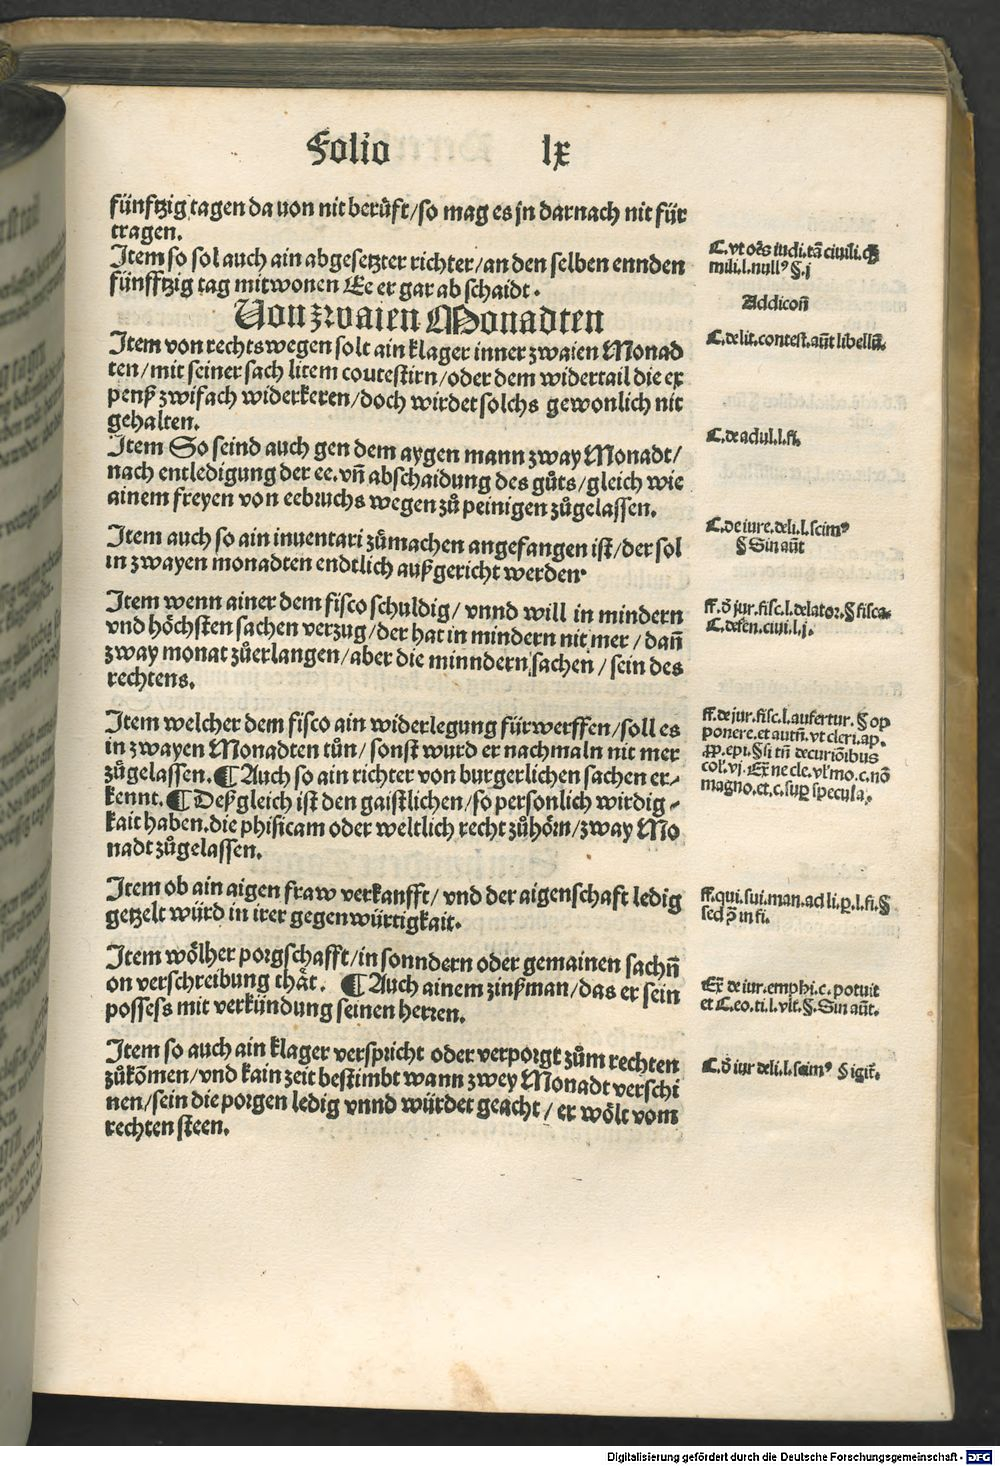 Folio lx
fünfftzig tagen da von nit berůfft/so mag es jn darnach nit für
tragen.
Item so sol auch ain abgesetzter richter/an den selben ennden
fünfftzig tag mitwonen Ee er gar ab schaidt.
Von zwaien Monadten
Item von rechtswegen solt ain klager inner zwaien Monad
ten/mit seiner sach litem coutestirn/oder dem widertail die ex
penß zwifach widerkeren/doch wirdet solchs gewonlich nit
gehalten.
Item So seind auch gen dem aygen mann zway Monadt/
nach entledigung der ee. vñ abschaidung des gůts/gleich wie
ainem freyen von eebruchs wegen zů peinigen zůgelassen.
Item auch so ain inuentari zůmachen angefangen ist/der sol
in zwayen monadten endtlich außgericht werden.
Item wenn ainer dem fisco schuldig/ vnnd will in mindern
vnd höchsten sachen verzug/der hat in mindern nit mer/ dañ
zway monat zůerlangen/aber die minndern sachen/ sein des
rechtens.
Item welcher dem fisco ain widerlegung fürwerffen/soll es
in zwayen Monadten tůn/ sonst wurd er nachmaln nit mer
zůgelassen. ¶ Auch so ain richter von burgerlichen sachen er-
kennt. ¶ Deßgleich ist den gaistlichen/so personlich wirdig-
kait haben. die phisicam oder weltlich recht zůhörn/zway Mo
nadt zůgelassen.
Item ob ain aigen fraw verkaufft/ vnd der aigenschaft ledig
getzelt würd in irer gegenwürtigkait.
Item wölher porgschafft/in sonndern oder gemainen sachñ
on verschreibung thät. ¶ Auch ainem zinßman/das er sein
possess mit verkündung seinen herren.
Item so auch ain klager verspricht oder verporgt zům rechten
zůkõmen/vnd kain zeit bestimbt wann zwey Monadt verschi
nen/sein die porgen ledig vnnd würdet geacht/ er wölt vom
rechten steen.
C. vt oẽs iudi. tã ciuili. 
mili. l. null⁹ §. j
Addicoñ
C. de lit. contest. aũt libellũ.
C. de adul. l. fi.
C. de iure. deli. l. scim⁹
§ Sin aũt
ff. õ jur. fisc. l. delator. § fisca.
C. defen. ciui. l. j.
ff. de jur. fisc. l. aufertur. § op
ponere. et autñ. vt cleri. ap.
epi. § si tñ decuriõibus
col. vj. Ex̃ ne cle. vl mo. c. nõ
magno. et. c. sup̱ specula.
ff. qui. sui. man. ad li. p̱. l. fi. §
sed in fi.
Ex̃ de iur. emphi. c. potuit
et C. eo. ti. l. vlt. §. Sin aũt.
C. õ iur deli. l. scim⁹ § igit̃.
Digitalisierung gefördert durch die Deutsche Forschungsgemeinschaft - DFG